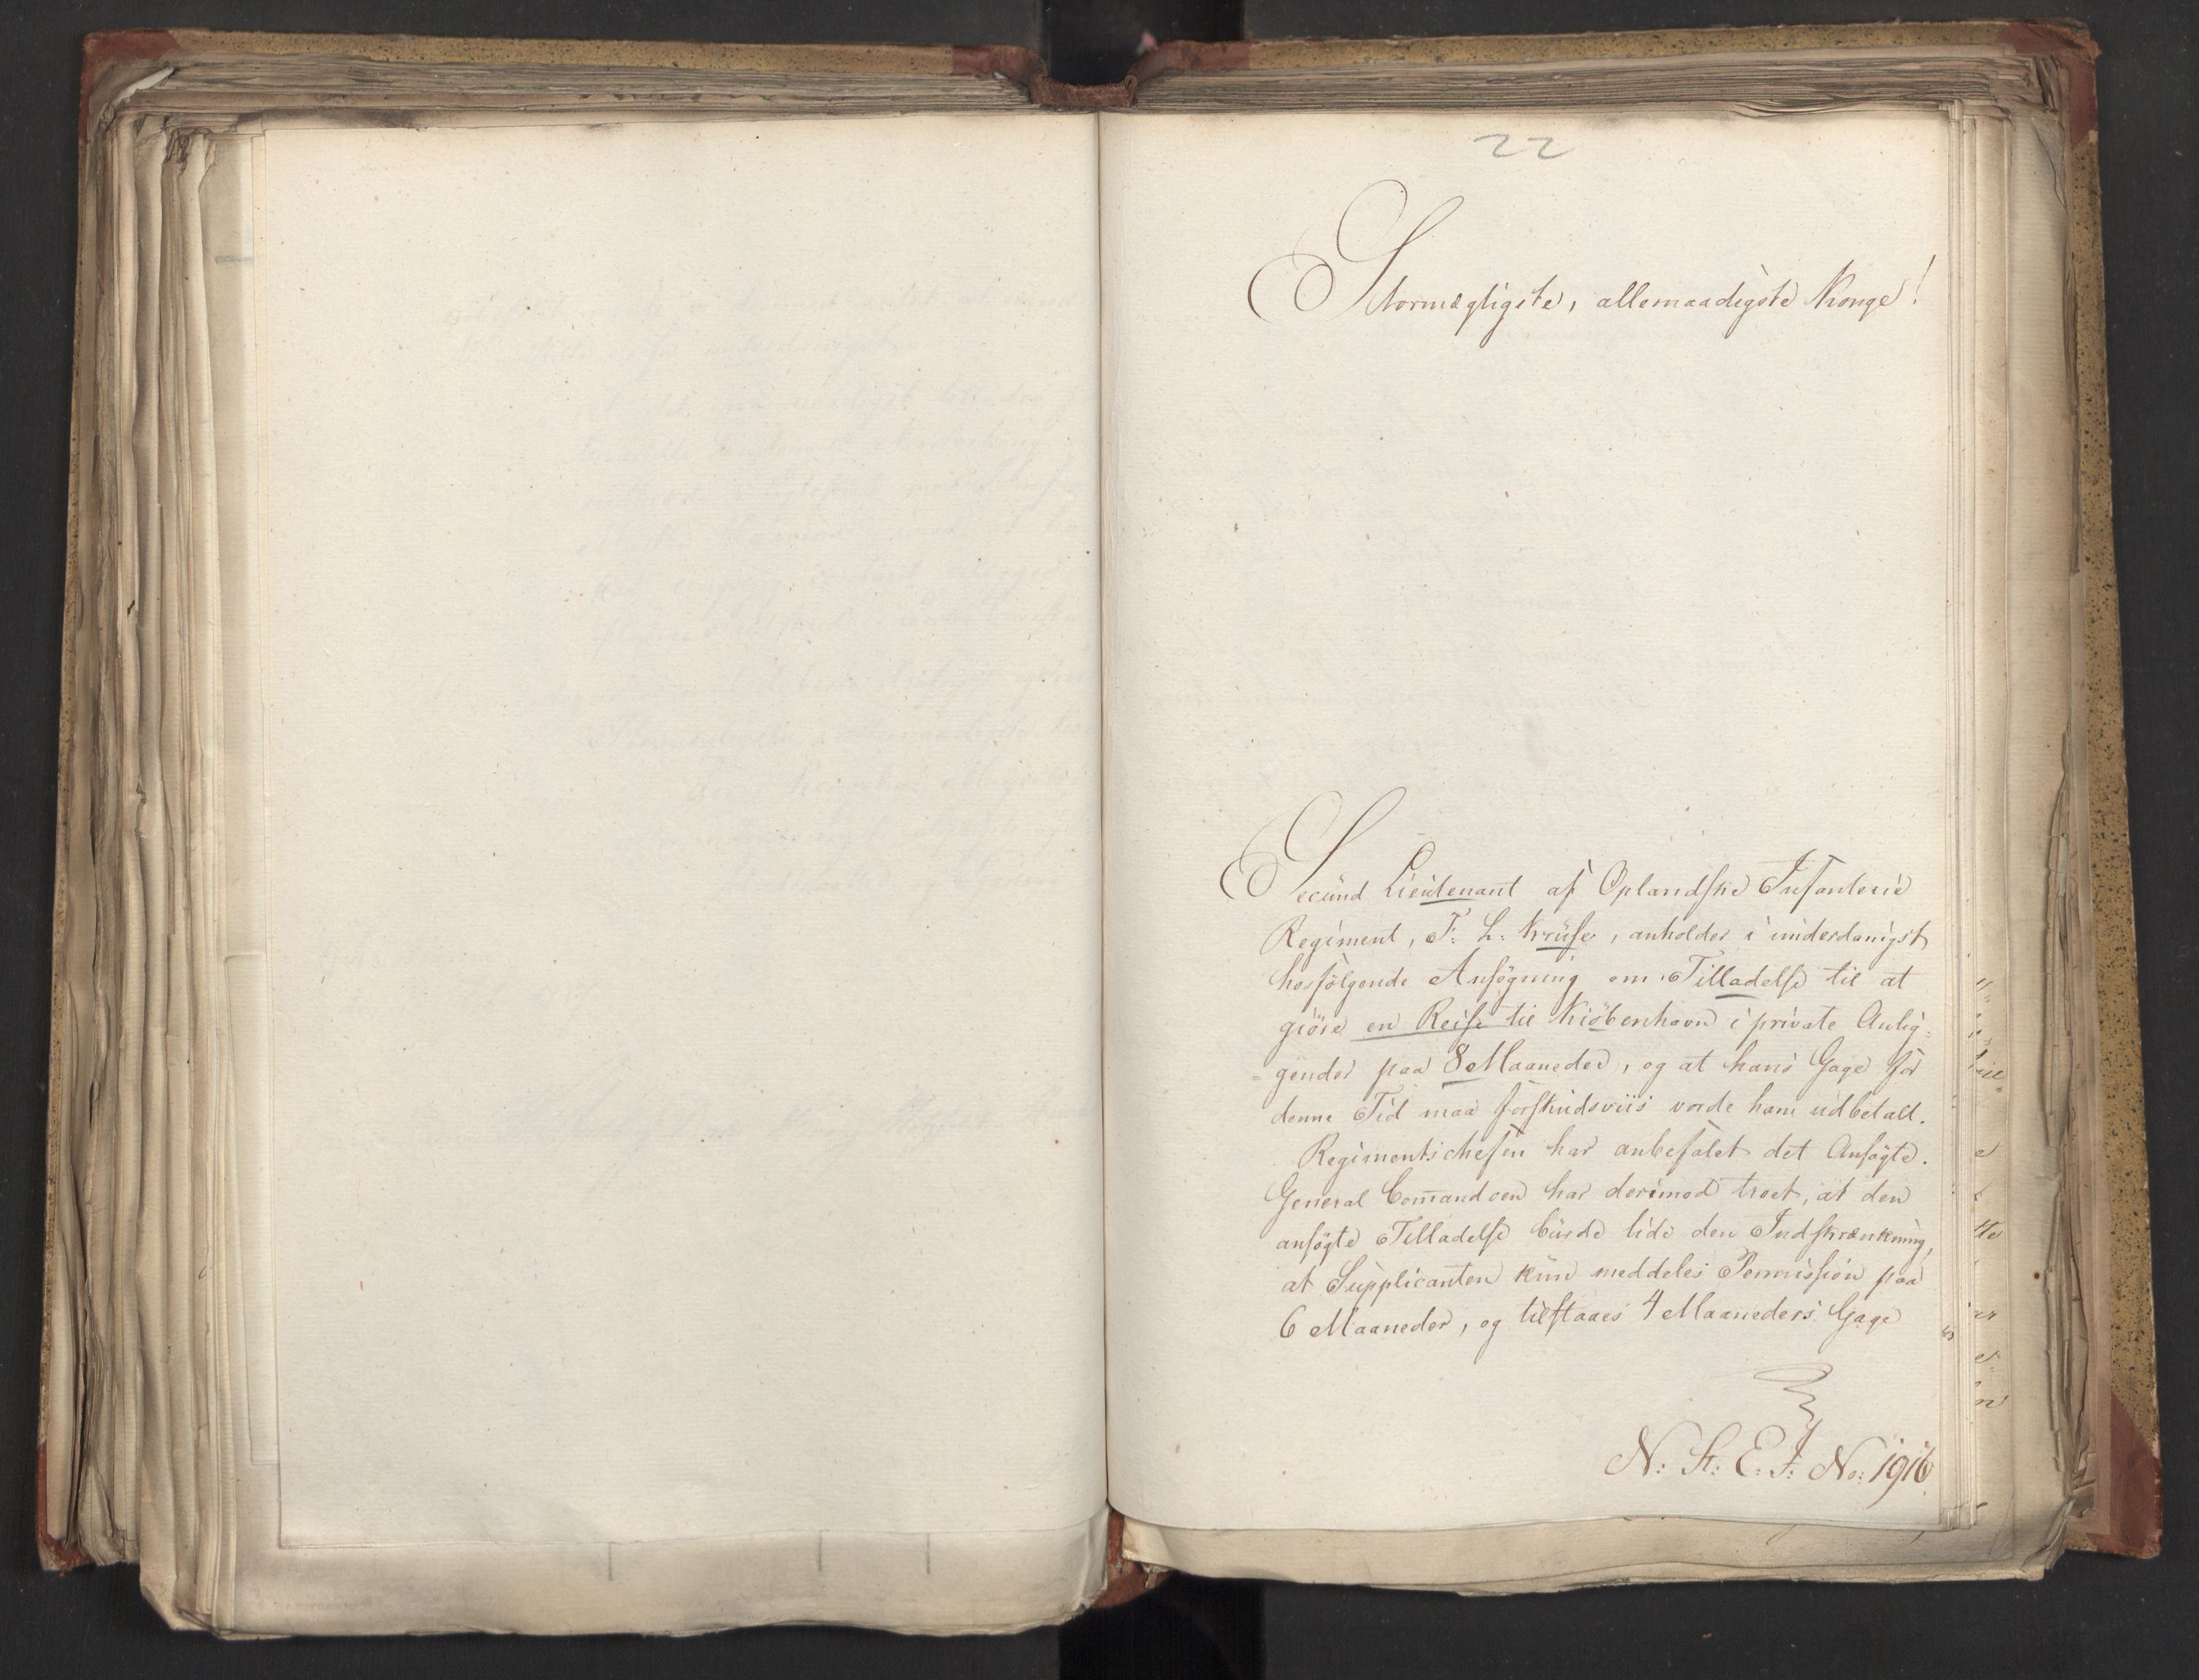 22
Stormægtigste, allernaadigste Konge!
Secund Lieutenant af Oplandske Infanterie
Regiment, F: L: Kruse, anholder i underdanigst
hosfølgende Ansøgning om Tilladelse til at
giöre en Reise til Kiöbenhavn i private Anlig=
=gender paa 8 Maaneder, og at hans Gage for
denne Tid maa forskudsviis vorde ham udbetalt.
Regimentschefen har anbefalet det Ansögte.
General Comandoen har derimod troet, at den
ansögte Tilladelse burde lide den Indskrænkning,
at Supplicanten kun meddeles Permission paa
6 Maaneder, og tilstaaes 4 Maaneders Gage
N: St: E: J: No: 1916